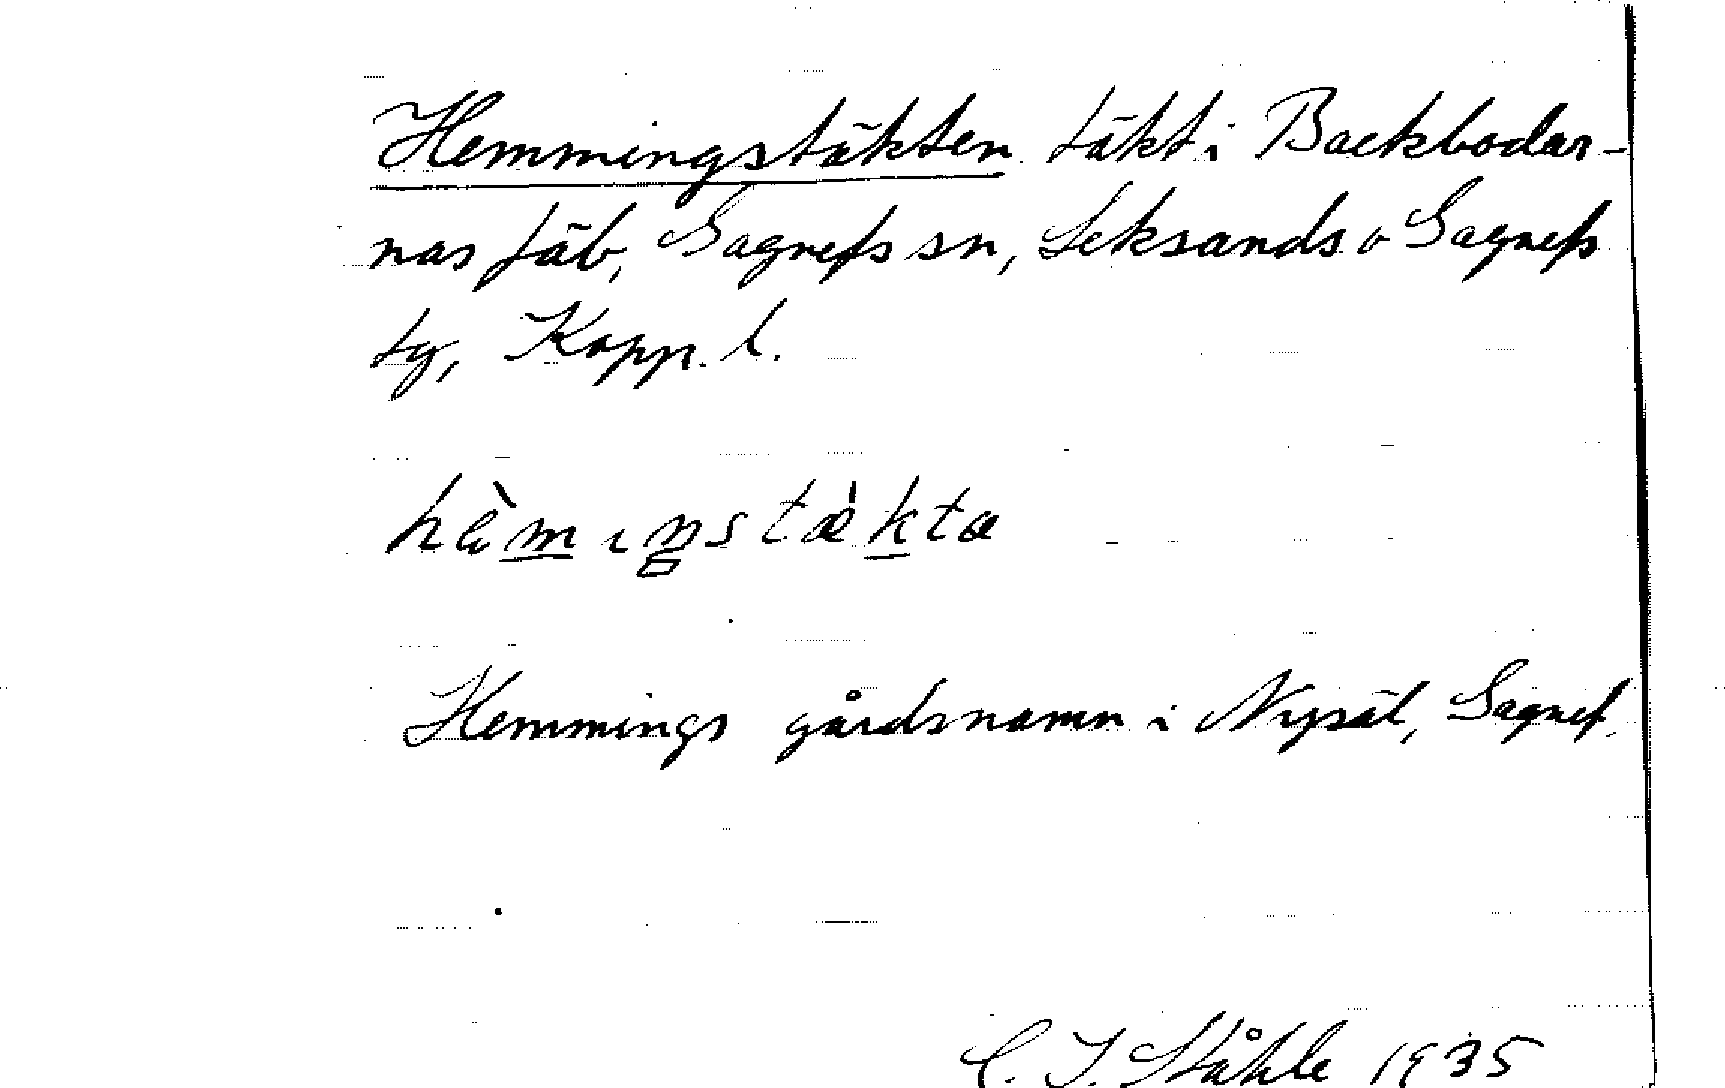 Hemmingstäkten täkt i Backbodar-
nas fäb, Gagnefs sn, Leksands o Gagnefs
tg, Kopp. l.
hèmıŋstækta
Hemmings gårdsnamn i Nysät, Gagnef.
C. I. Ståhle 1935